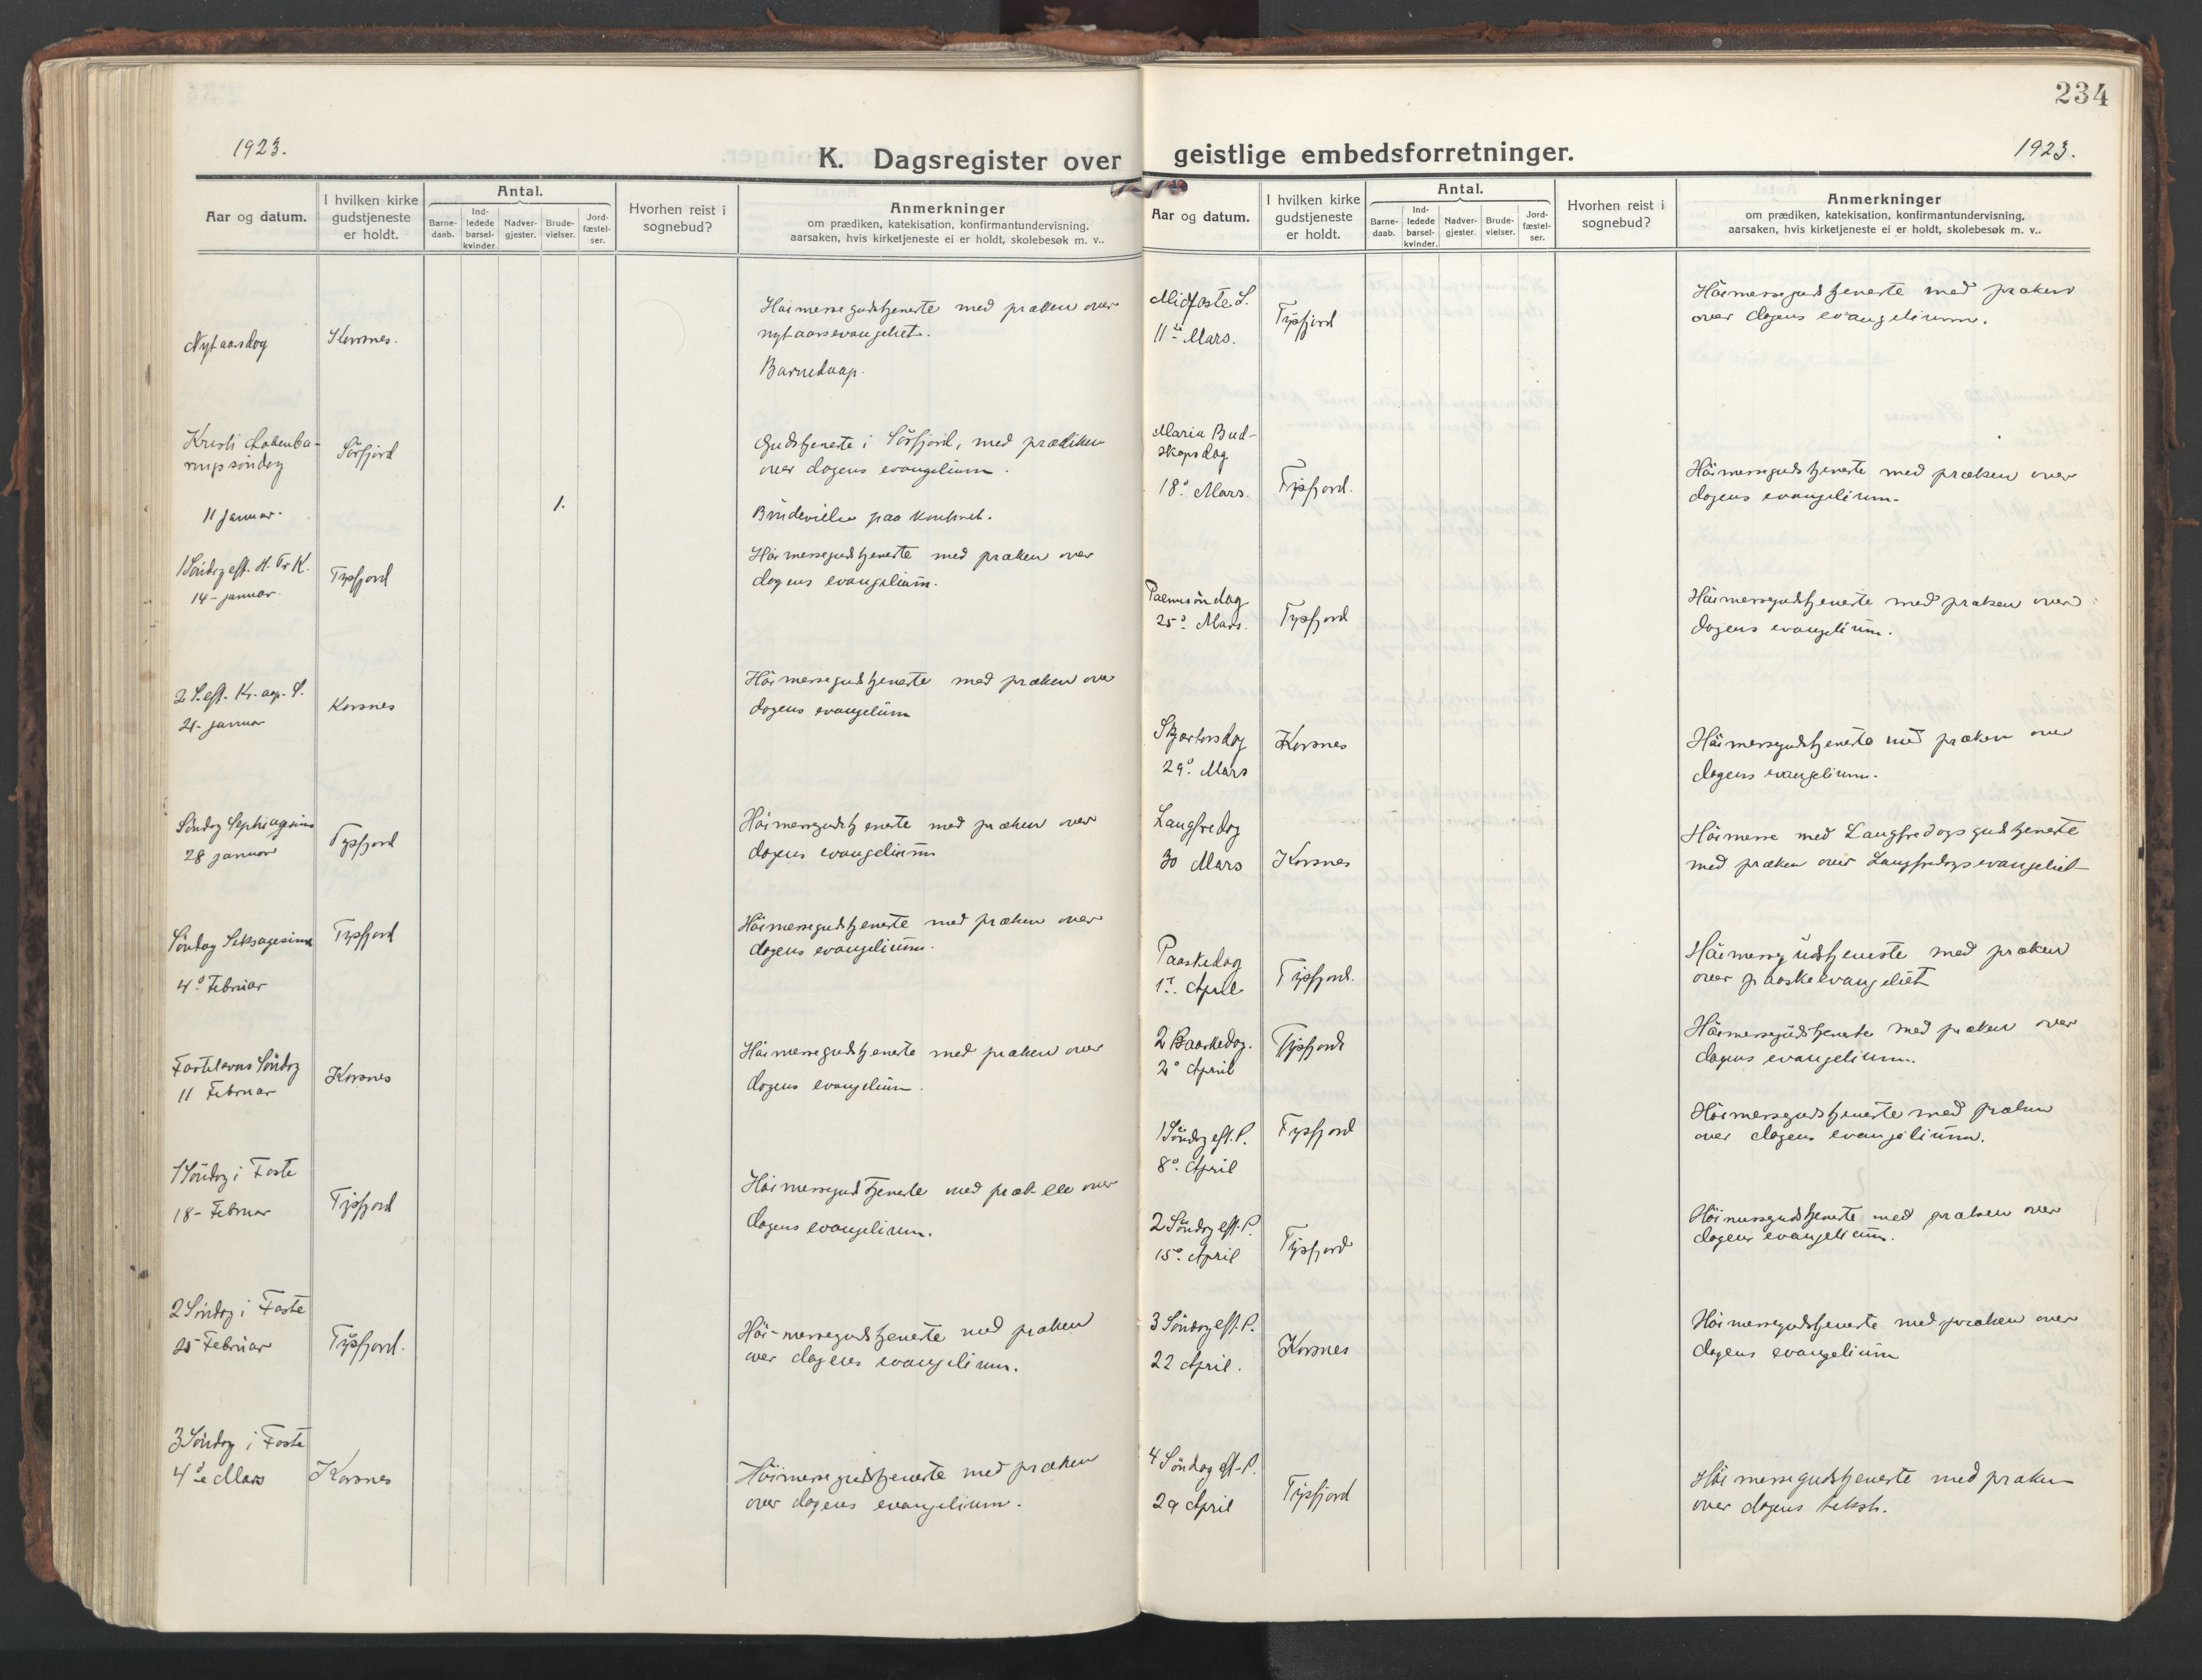 234
1923.
K. Dagsregister over
Aar og datum.
I hvilken kirke
gudstjeneste
er holdt.
Antal.
Barne-
daab.
Ind-
ledede
barsel-
kvinder.
Nadver-
gjester.
Brude-
vielser.
Jord-
fæstel-
ser.
Hvorhen reist i
sognebud?
Anmerkninger
om prædiken, katekisation, konfirmantundervisning,
aarsaken, hvis kirketjeneste ei er holdt, skolebesøk m. v..
Nytaarsdag
Korsnes.
Høimessegudstjeneste med præken over
nytaarsevangeliet.
Barnedaap.
Kristi Aabenba-
ringssöndag
Sörfjord
Gudstjeneste i Sörfjord, med prædiken
over dagens evangelium.
11 Januar.
1.
Brudevielse paa kontoret.
1 Söndag eft. H. Tr. K.
14 - januar.
Tysfjord
Höimessegudstjeneste med præken over
dagens evangelium.
2 S. eft. Kr. aap. S.
21 - januar
Korsnes
Höimessegudstjeneste med præken over
dagens evangelium
Söndag Septuagesima
28 januar
Tysfjord
Höimessegudstjeneste med præken over
dagens evangelium
Söndag Seksagesima
4de Februar
Tysfjord
Höimessegudstjeneste med præken over
dagens evangelium.
Fastelavns Söndag
11 Februar
Korsnes
Höimessegudstjeneste med præken over
dagens evangelium.
1 Söndag i Faste
18 - Februar
Tysfjord
Höimessegudstjeneste med præken over
dagens evangelium.
2 Söndag i Faste
25 Februar
Tysfjord.
Höi-messegudstjeneste med præken
over dagens evangelium.
3 Söndag i Faste
4de Mars
Korsnes
Höimessegudstjeneste med præken
over dagens evangelium.
geistlige embedsforretninger.
1923.
Aar og datum.
I hvilken kirke
gudstjeneste
er holdt.
Antal.
Barne-
daab.
Ind-
ledede
barsel-
kvinder.
Nadver-
gjester.
Brude-
vielser.
Jord-
fæstel-
ser.
Hvorhen reist i
sognebud?
Anmerkninger
om prædiken, katekisation, konfirmantundervisning,
aarsaken, hvis kirketjeneste ei er holdt, skolebesøk m. v..
Midfaste S.
11te Mars.
Tysfjord
Höimessegudstjeneste med præken
over dagens evangelium.
Maria Bud-
skapsdag
18de Mars.
Tysfjord.
Höimessegudstjeneste med præken over
dagens evangelium.
Palmesöndag
25de Mars.
Tysfjord
Höimessegudstjeneste med præken over
dagens evangelium.
Skjærtorsdag
29de Mars
Korsnes
Höimessegudstjeneste med præken over
dagens evangelium.
Langfredag
30 Mars
Korsnes
Höimesse med Langfredagsgudstjeneste
med præken over Langfredagsevangeliet
Paaskedag
1ste April
Tysfjord.
Höimessegudstjeneste med præken
over paaskeevangeliet
2 Paaskedag.
2de April
Tysfjord
Höimessegudstjeneste med præken over
dagens evangelium.
1 Söndag eft. P.
8de April
Tysfjord
Höimessegudstjeneste med præken
over dagens evangelium.
2 Söndag eft. P.
15de April
Tysfjord
Höimessegudstjeneste med præken over
dagens evangelium.
3 Söndag eft. P.
22 April.
Korsnes
Höimessegudstjeneste med præken over
dagens evangelium
4 Söndag eft. P.
29 April
Tysfjord
Höimessegudstjeneste med præken
over dagens tekst.